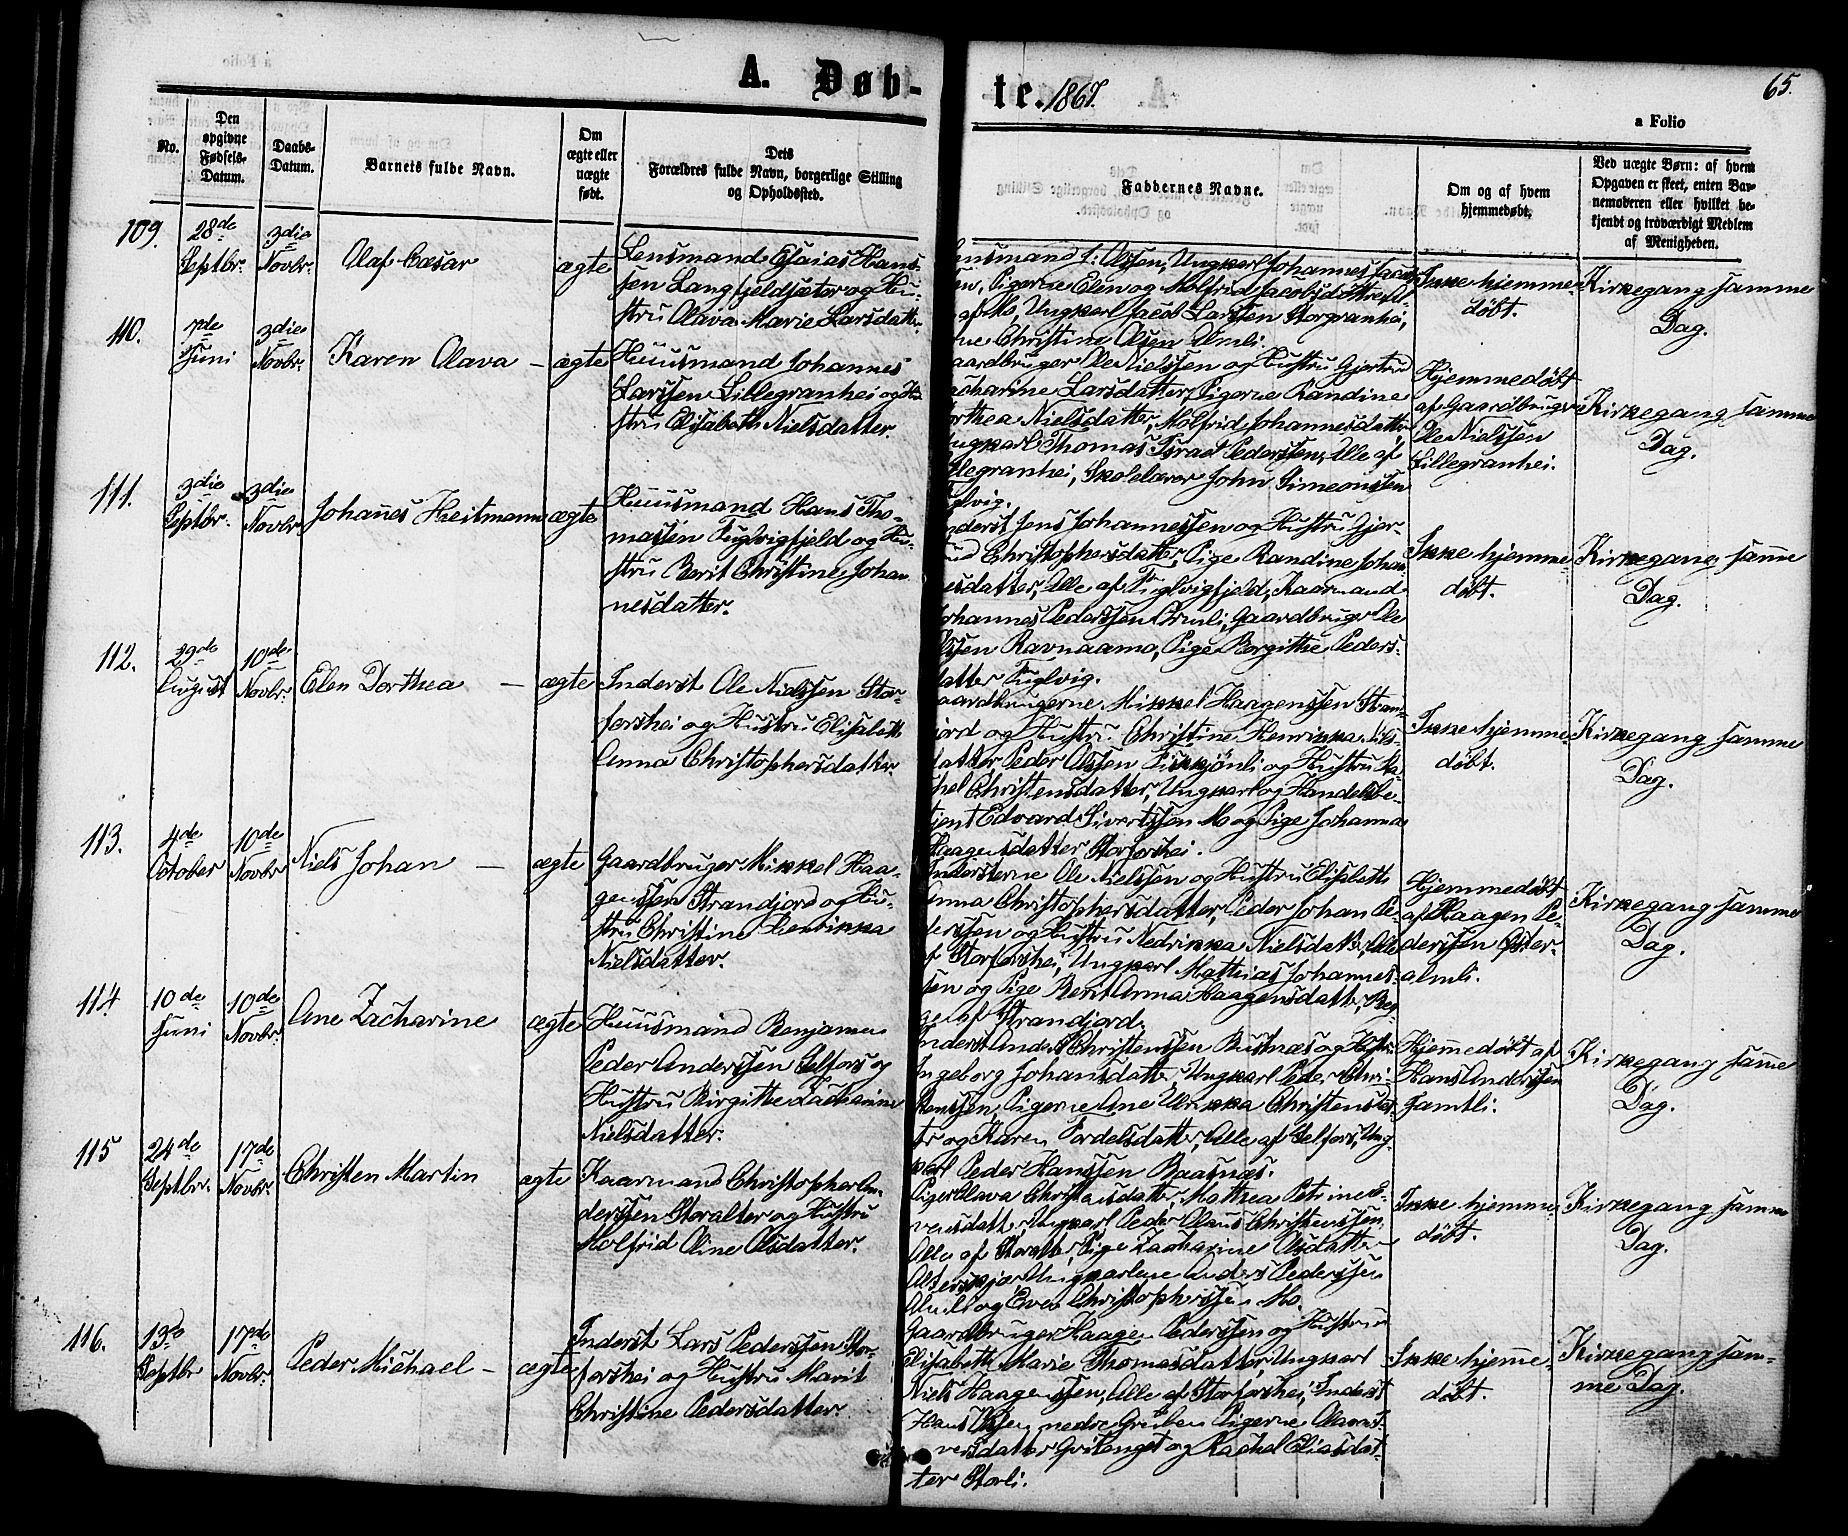 A. Døb-
te. 1867.
65.
a Folio
No.
Den
opgivne
Fødsels-
Datum.
Daabs-
Datum.
Barnets fulde Navn.
Om
ægte eller
uægte
født.
Dets
Forældres fulde Navn, borgerlige Stilling
og Opholdssted.
Faddernes Navne.
Om og af hvem
hjemmedøbt.
Ved uægte Børn: af hvem
Opgaven er skeet, enten Bar-
nemoderen eller hvilket be-
kjendt og troværdigt Medlem
af Menigheden.
109.
28de
Septbr.
3die
Novbr.
Olaf Cæsar
ægte
Lensmand Esaias Hans-
sen Langfjeldsæter og Hu-
stru Olava Marie Larsdatter
Olssen, Ungkarl Johannes
Pigerne Elen og Molfrid Jacobsdøttre
af Mo, Ungkarl Jacob Larssen Storgranhei,
Christine Olsen Ulmli.
Ikke hjemme-
døbt.
Kirkegang samme
Dag.
110.
7de
Juni
3die
Novbr.
Karen Olava –
ægte
Huusmand Johannes
Larssen Lillegranhei og Hu-
stru Elisabeth Nielsdatter.
aardbruger Ole Nielssen og Hustru Gjertru
acharine Larsdatter, Pigerne Randine
orthea Nielsdatter, Molfrid Johannesdatter
ngkarl Thomas Israel Pederssen, Alle af
llegranhei, Skolelærer John Simeonssen
glvig.
Hjemmedøbt
af Gaardbruger
Ole Nielssen
Lillegranhei.
Kirkegang samme
Dag.
111.
3die
Septbr.
3die
Novbr.
Johanes Heitmann
ægte
Huusmand Hans Tho-
massen Fuglvigfjeld og Hu-
stru Berit Christine Johan-
nesdatter.
nderst Jens Johannessen og Hustru Gjer-
ud Christophersdatter, Pige Randine Johan-
esdatter, Alle af Fuglvigfjeld, Kaarmand
ohannes Pederssen Ormli, Gaardbruger Ole
lssen Ravnaamo, Pige Borgithe Peders-
datter Fuglvig.
Ikke hjemme-
døbt.
Kirkegang samme
Dag.
112.
29de
August
10de
Novbr.
Elen Dorthea –
ægte
Inderst Ole Nielssen Stor-
forshei og Hustru Elisabeth
Anna Christophersdatter.
aardbrugerne Mikkel Haagenssen Stran-
jord og Hustru Christine Henrikka Niels-
datter Peder Olssen og Hustru Ra-
chel Christensdatter, Ungkarl og Handelsbe-
tjent Edvard Sivertssen Mo og Pige Johanna
Haagensdatter Storforshei.
Ikke hjemme-
døbt.
Kirkegang samme
Dag.
113.
4de
October
10de
Novbr
Niels Johan –
ægte
Gaardbruger Mikkel Haa-
genssen Strandjord og Hu-
stru Christine Henrikka
Nielsdatter.
Indersterne Ole Nielssen og Hustru Elisabeth
Anna Christophersdatter, Peder Johan Pe-
derssen og Hustru Nedrikka Nielsdatter, Alle
af Storforshei, Ungkarl Mathias Johannes-
sen og Pige Berit Anna Haagensdatter, Beg-
ge af Strandjord.
Hjemmedøbt
af Haagen Pe-
derssen Øster-
almli.
Kirkegang samme
Dag.
114
10de
Juni
10de
Novbr.
Ane Zacharine
ægte
Huusmand Benjamin
Peder Anderssen Selfors og
Hustru Birgitte Zacharine
Nielsdatter.
Inderst Anders Christenssen Bustnæs og Hustru
Ingeborg Johansdatter, Ungkarl Peder Chri-
stenssen, Pigerne Ane Ulrikka Christensdat-
ter og Karen Tordelsdatter, Alle af Selfors, Ung-
karl Peder Hanssen Baasnæs.
Hjemmedøbt af
Hans Anderssen
Jamtli.
Kirkegang samme
Dag.
115
24de
Septbr.
17de
Novbr.
Christen Martin
ægte
Kaarmand Christopher An-
derssen Storalter og Hustru
Molfrid Oline Olsdatter.
Piger Olava Christiansdatter, Mathea Petrine I-
versdatter, Ungkarl Peder Olaus Christenssen,
Alle af Storalter, Pige Zacharine Olsdatter
Ungkarlene Anders Pederssen
Almli og Even Christopherssen Mo.
Ikke hjemme-
døbt.
Kirkegang samme
Dag.
116.
13de
Septbr
17de
Novbr.
Peder Michael –
ægte
Inderst Lars Pederssen Stor-
forshei og Hustru Marit
Christine Pedersdatter.
Gaardbruger Haagen Pederssen og Hustru
Elisabeth Marie Thomasdatter, Ungkarl
Niels Haagenssen, Alle af Storforshei, Inderst
Hans Olssen nedre Gruben, Pigerne
versdatter og Rachel Eliasdat-
ter Storli.
Ikke hjemme-
døbt.
Kirkegang sam-
me Dag.